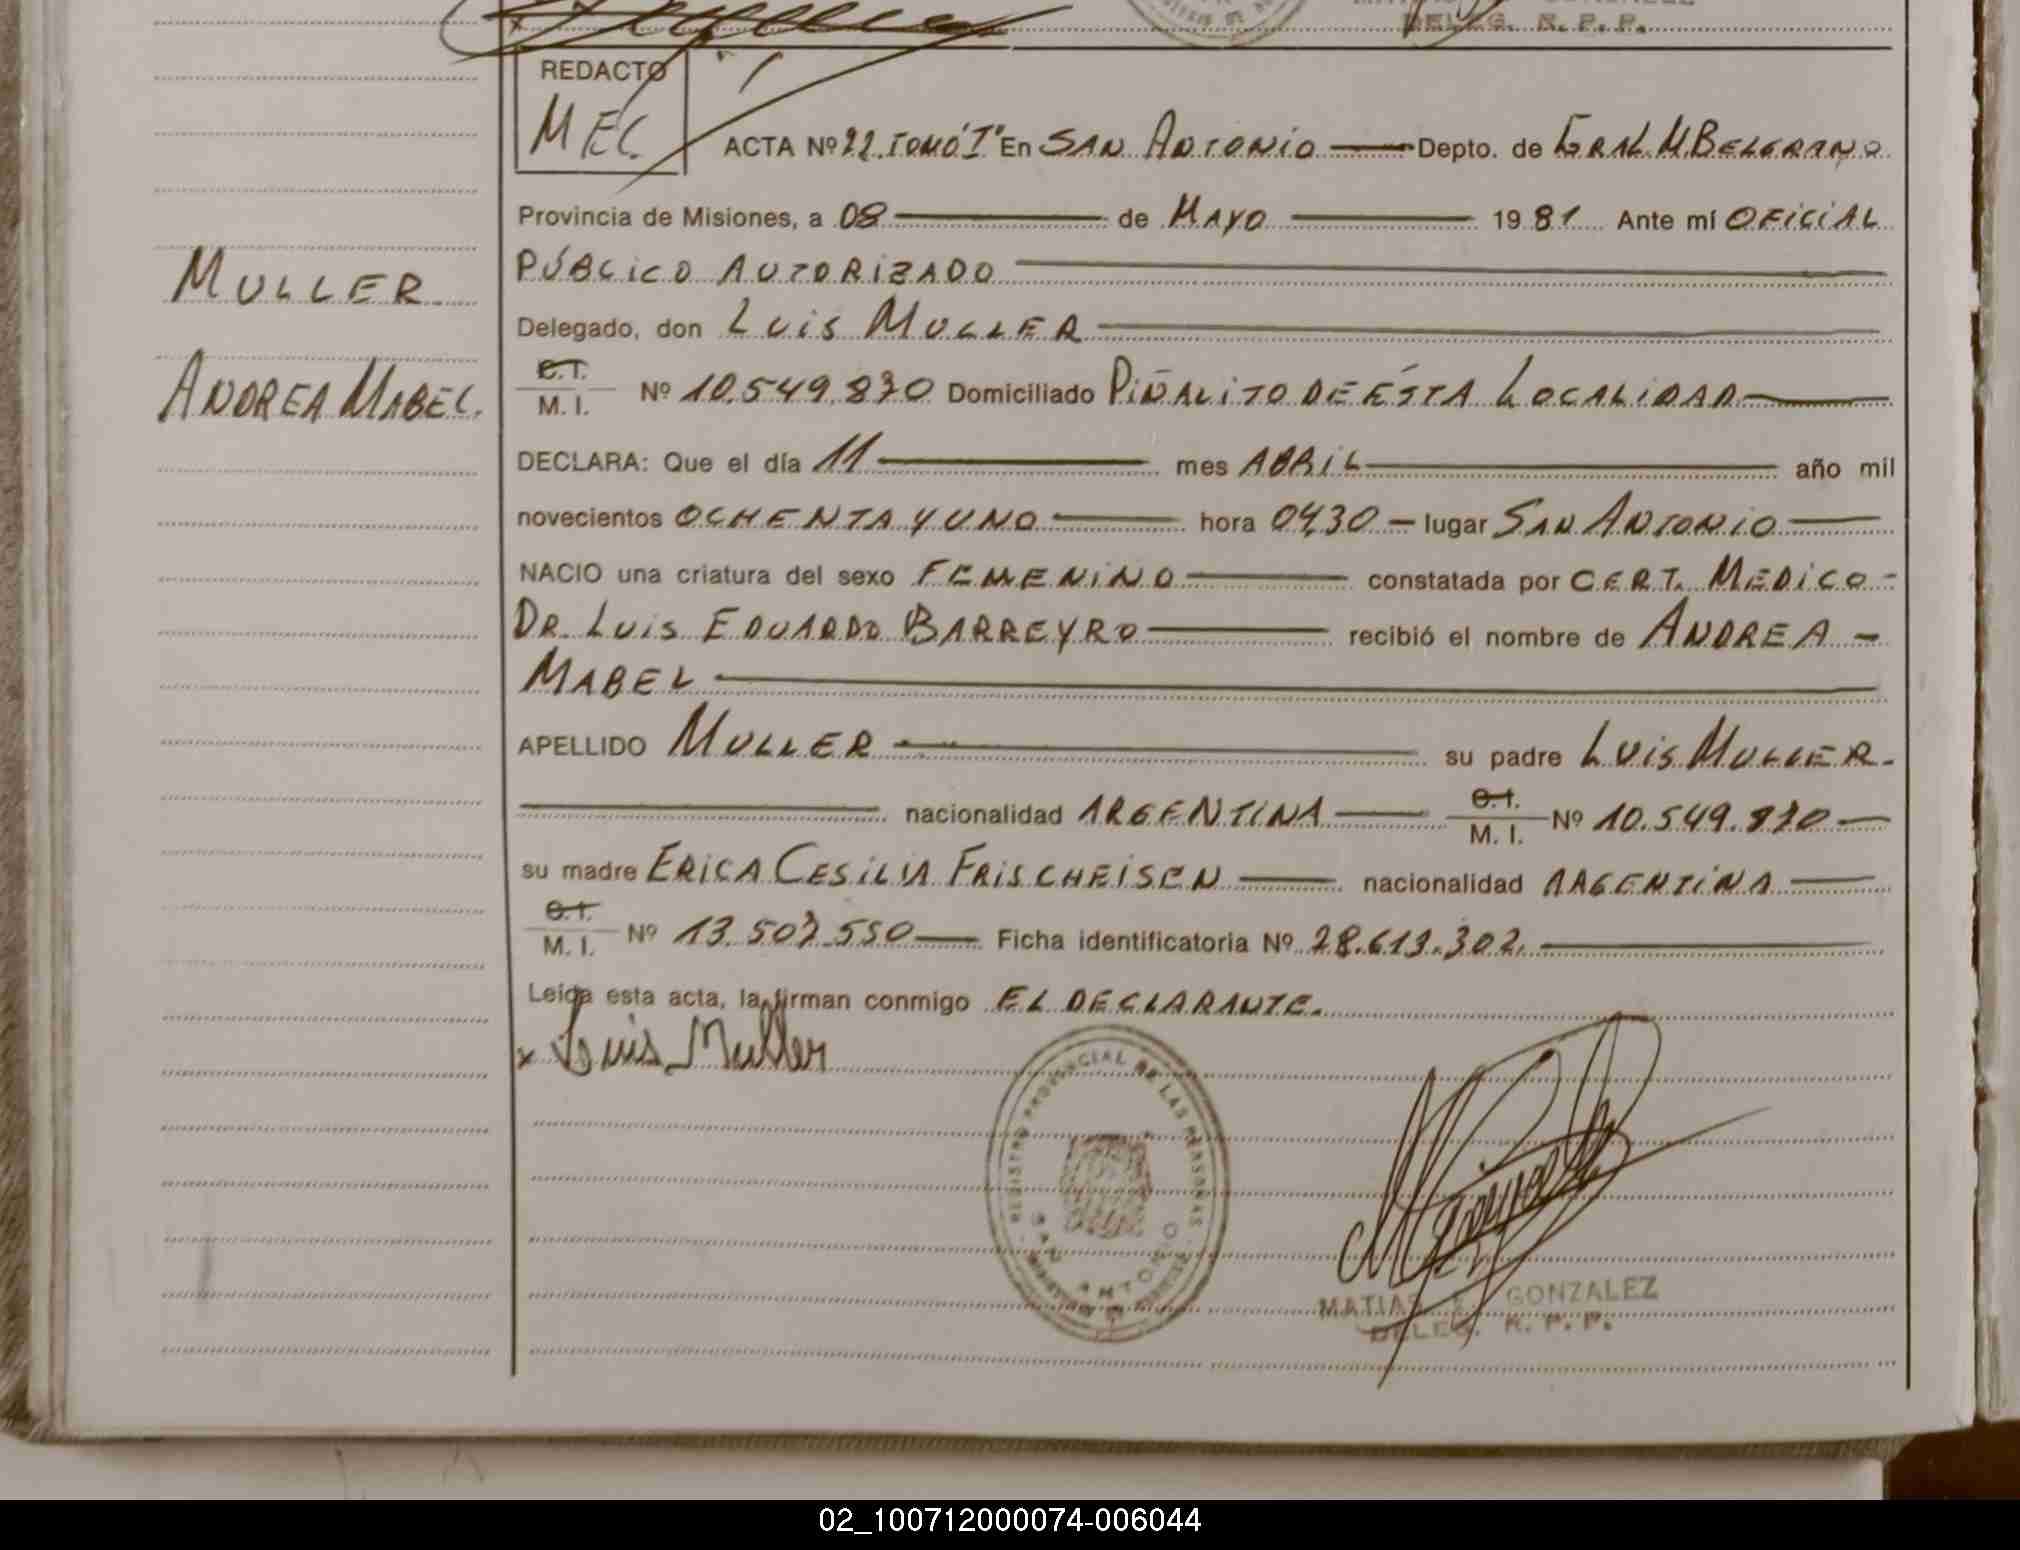 DELEG. R. P. P.
REDACTO
MEC.
ACTA Nº 22. TOMO "Iº" En SAN ANTONIO Depto. de GRAL. M. BELGRANO
Provincia de Misiones, a 08 de MAYO 1981 Ante mí OFICIAL
PÚBLICO AUTORIZADO
MULLER
Delegado, don LUIS MULLER
C.I.
M. I. Nº 10.549.870 Domiciliado PIÑALITO DE ÉSTA LOCALIDAD
ANDREA MABEL.
DECLARA: Que el día 11 mes ABRIL año mil
novecientos OCHENTA Y UNO hora 04,30 - lugar SAN ANTONIO
NACIO una criatura del sexo FEMENINO constatada por CERT. MEDICO-
DR. LUIS EDUARDO BARREYRO recibió el nombre de ANDREA -
MABEL
APELLIDO MULLER su padre LUIS MULLER-
nacionalidad ARGENTINA C.I.
M. I. Nº 10.549.870
su madre ERICA CESILIA FRISCHEISEN nacionalidad ARGENTINA
C.I.
M. I. Nº 13.507.550 Ficha identificatoria Nº 28.613.302.
Leída esta acta, la firman conmigo EL DECLARANTE.
x Luis Muller
REGISTRO PROVINCIAL DE LAS PERSONAS
SAN ANTONIO
MATIAS GONZALEZ
DELEG. R. P. P.
02_100712000074-006044